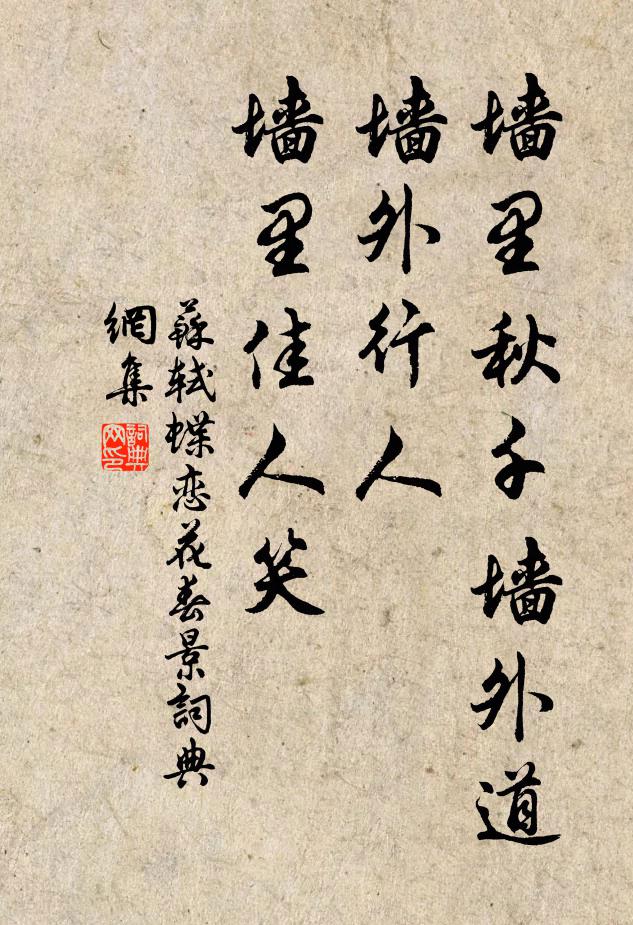 墙里秋千墙外道
墙外行人
墙里佳人笑
蘇軾蝶恋花春景詞典
網集
詞典網印